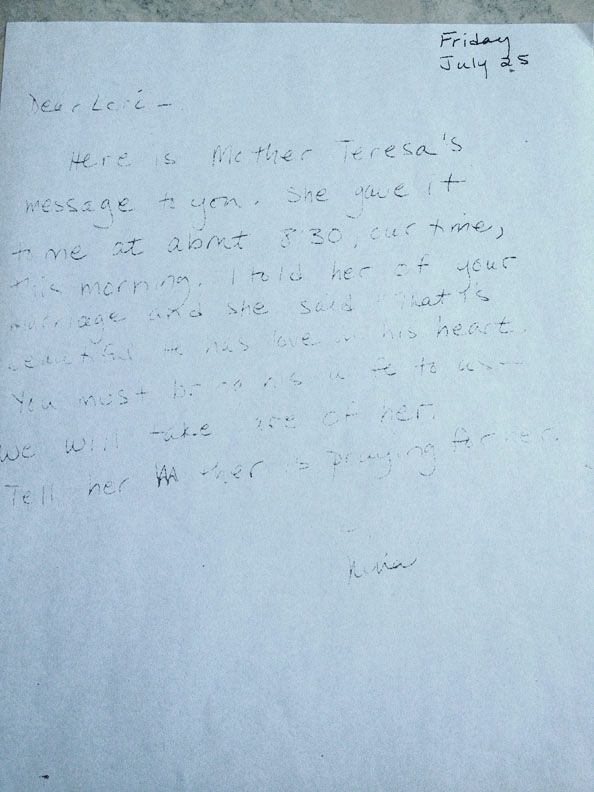 Friday
July 25
Dear Lori –
Here is Mother Teresa's
message to you. She gave it
to me at about 8:30, our time,
this morning. I told her of your
marriage and she said "That is
beautiful. He has love in his heart.
You must bring his wife to us –
We will take care of her.
Tell her Mother is praying for her.